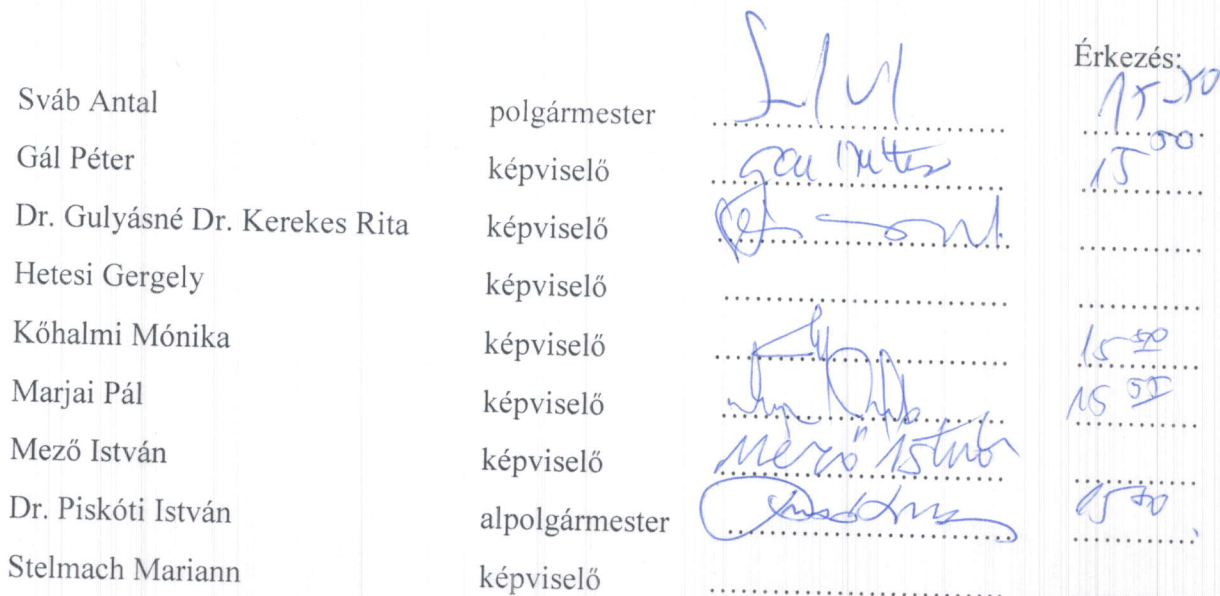 Érkezés:
Sváb Antal polgármester
Gál Péter képviselő 15 00
Dr. Gulyásné Dr. Kerekes Rita képviselő
Hetesi Gergely képviselő
Kőhalmi Mónika képviselő 15 50
Marjai Pál képviselő
Mező István képviselő Mező István
Dr. Piskóti István alpolgármester
Stelmach Mariann képviselő